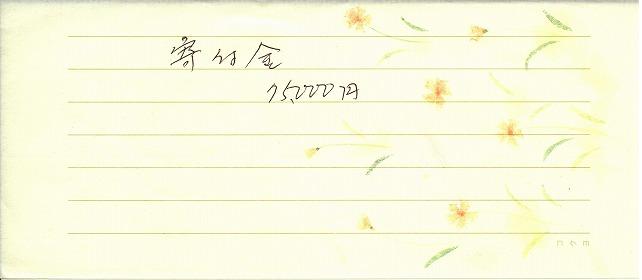 寄付金
75,000円